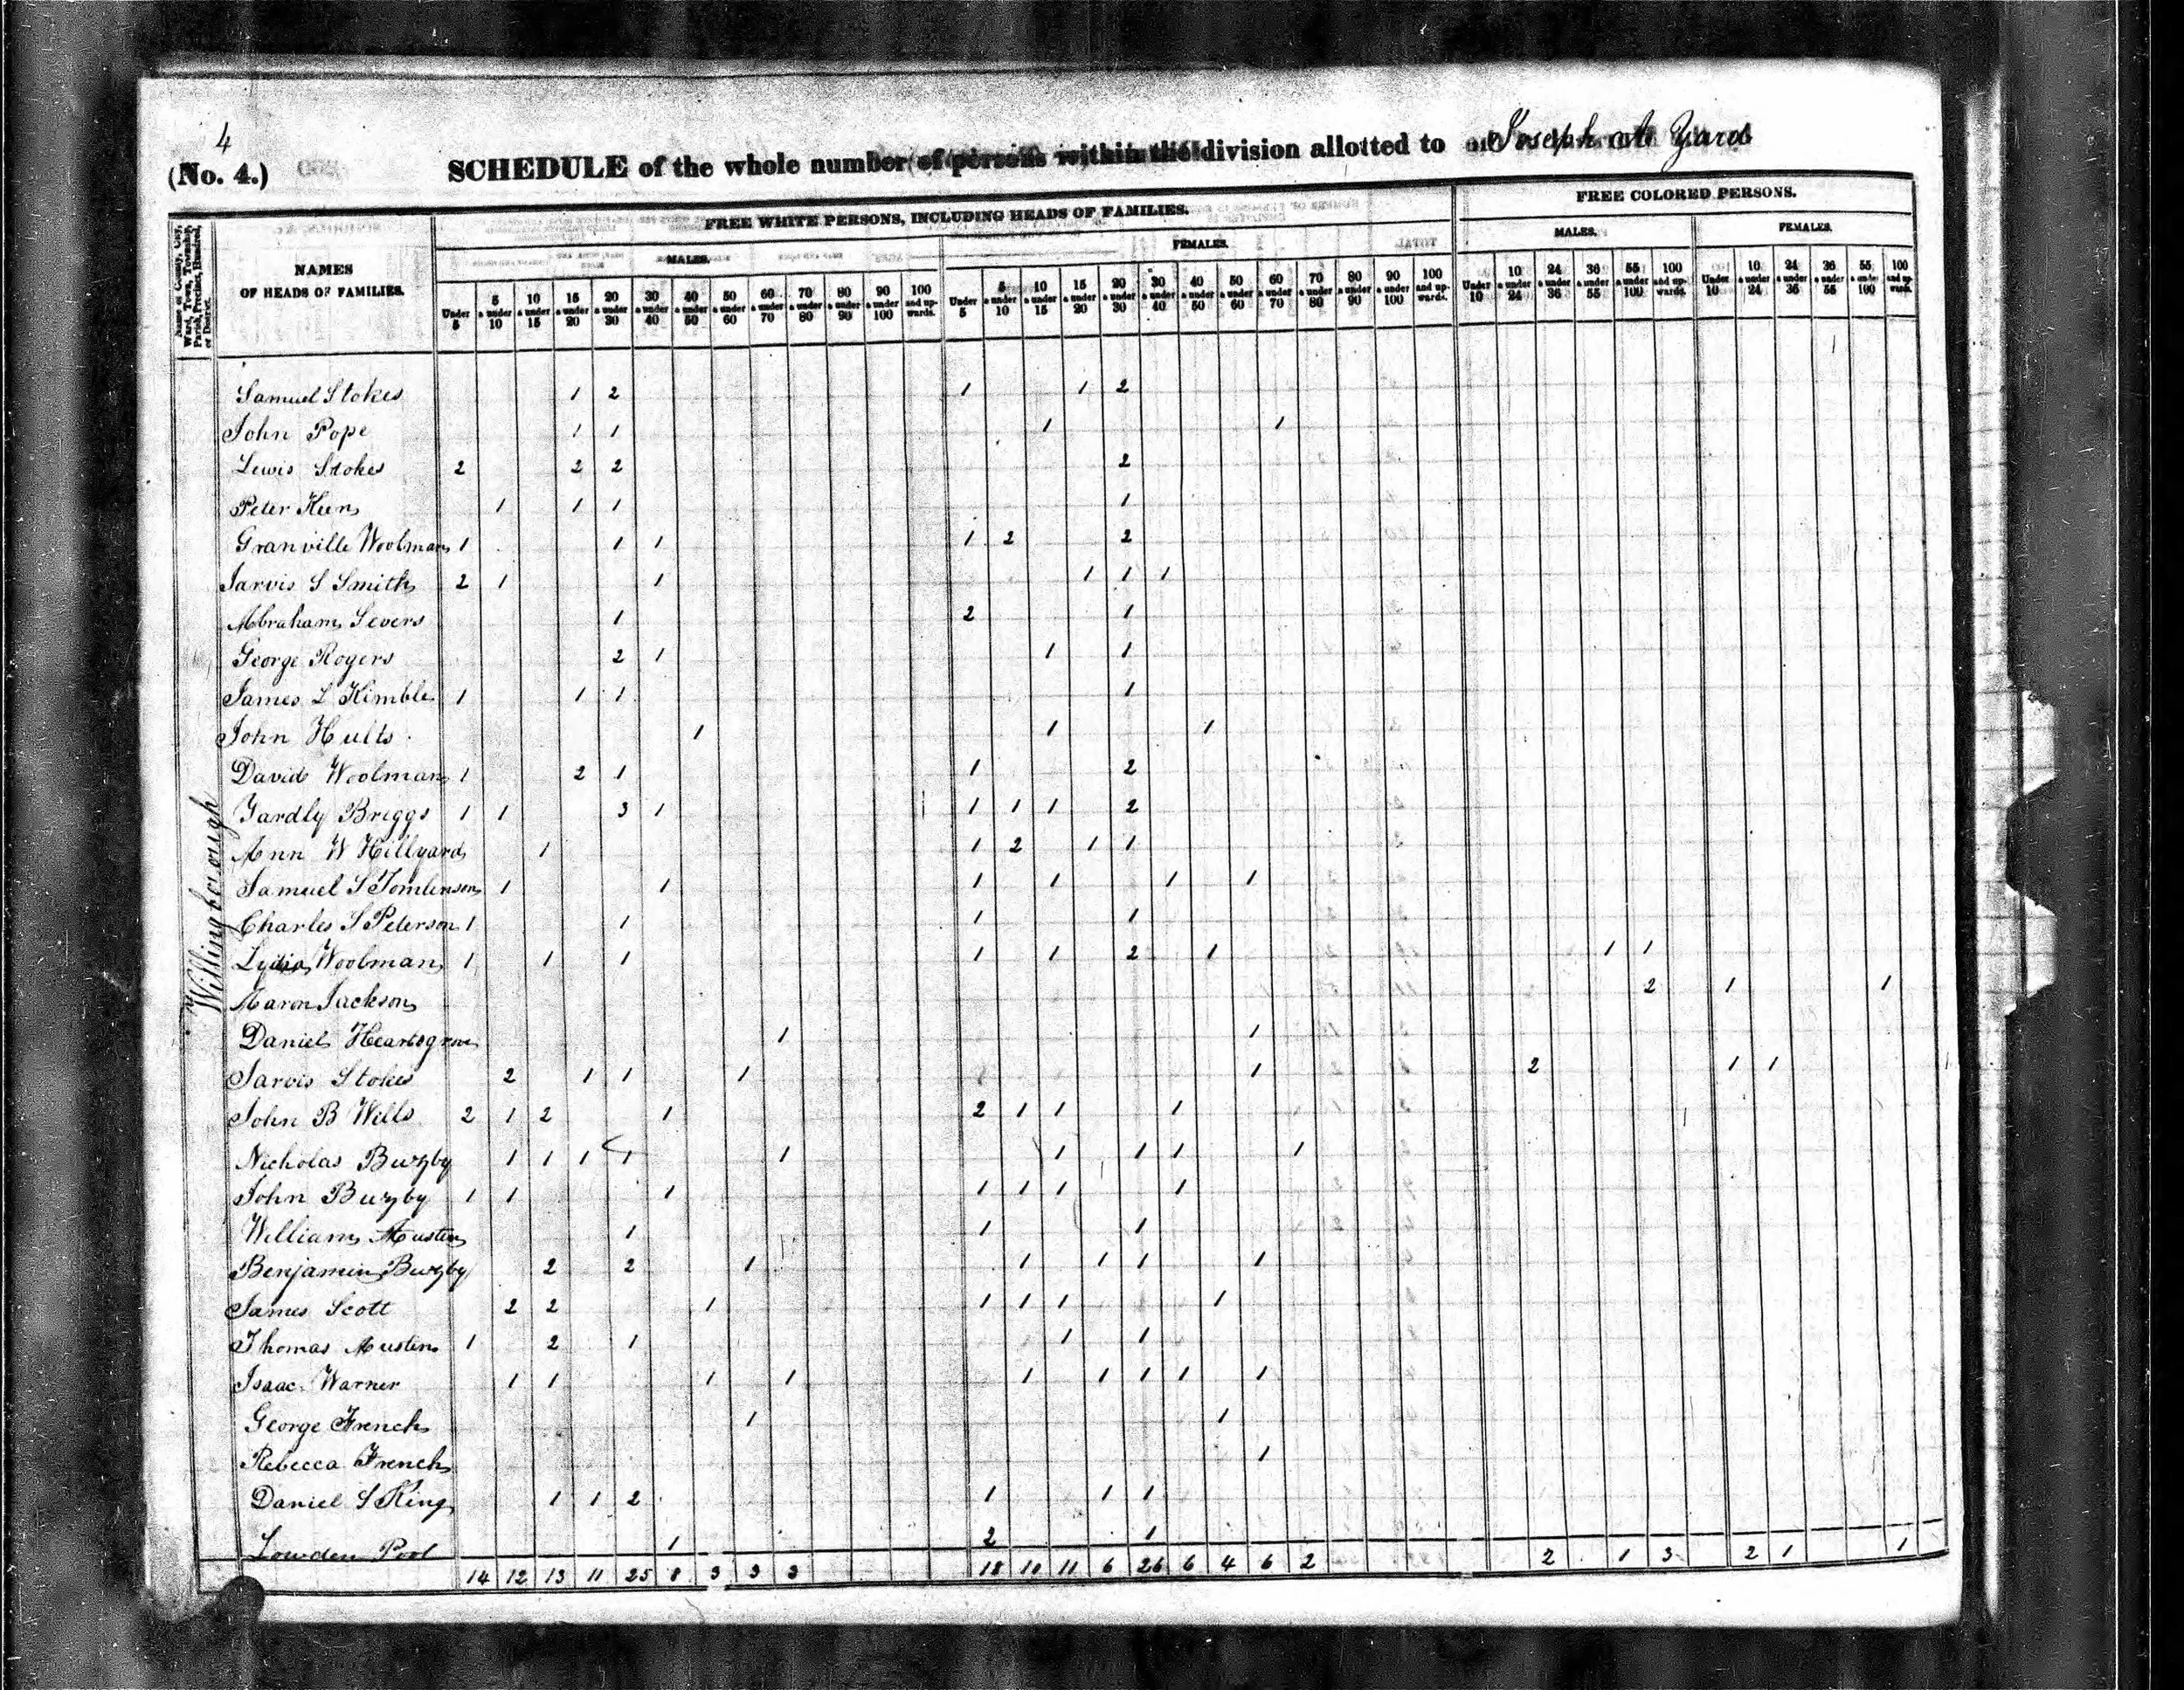 4
(No. 4.) SCHEDULE of the whole number of persons within the division allotted to Joseph A Yard
Name of County, City, Ward, Town, Township, Parish, Precinct, Hundred, or District.
NAMES OF HEADS OF FAMILIES.
FREE WHITE PERSONS, INCLUDING HEADS OF FAMILIES.
FREE COLORED PERSONS.
MALES. FEMALES. MALES. FEMALES.
Under 5 | 5 & under 10 | 10 & under 15 | 15 & under 20 | 20 & under 30 | 30 & under 40 | 40 & under 50 | 50 & under 60 | 60 & under 70 | 70 & under 80 | 80 & under 90 | 90 & under 100 | 100 and upwards.
Under 5 | 5 & under 10 | 10 & under 15 | 15 & under 20 | 20 & under 30 | 30 & under 40 | 40 & under 50 | 50 & under 60 | 60 & under 70 | 70 & under 80 | 80 & under 90 | 90 & under 100 | 100 and upwards.
Under 10 | 10 & under 24 | 24 & under 36 | 36 & under 55 | 55 & under 100 | 100 and upwards.
Under 10 | 10 & under 24 | 24 & under 36 | 36 & under 55 | 55 & under 100 | 100 and upwards.
Willingborough
Samuel Stokes 1 2 1 1 2
John Pope 1 1 1 1
Lewis Stokes 2 2 2 2
Peter Keen 1 1 1 1
Granville Woolman 1 1 1 1 2 2
Jarvis S Smith 2 1 1 1 1 1
Abraham Severs 1 2 1
George Rogers 2 1 1 1
James L Kimble 1 1 1 1
John Hults 1 1 1
David Woolman 1 2 1 1 2
Yardly Briggs 1 1 3 1 1 1 1 2
Ann W Hillyard 1 1 2 1 1
Samuel S Tomlinson 1 1 1 1 1 1
Charles S Peterson 1 1 1 1
Lydia Woolman 1 1 1 1 1 2 1 1 1
Aaron Jackson 2 1 1
Daniel Heartsgrove 1 1
Jarvis Stokes 2 1 1 1 1 2 1 1
John B Wills 2 1 2 1 2 1 1 1
Nicholas Buzby 1 1 1 1 1 1 1 1 1
John Buzby 1 1 1 1 1 1 1
William Austin 1 1 1
Benjamin Buzby 2 2 1 1 1 1 1
James Scott 2 2 1 1 1 1 1
Thomas Austin 1 2 1 1 1
Isaac Warner 1 1 1 1 1 1 1 1 1
George French 1 1
Rebecca French 1
Daniel S King 1 1 2 1 1 1
Lowden Pool 1 2 1
14 12 13 11 25 8 3 3 3 18 10 11 6 26 6 4 6 2 2 1 3 2 1 1